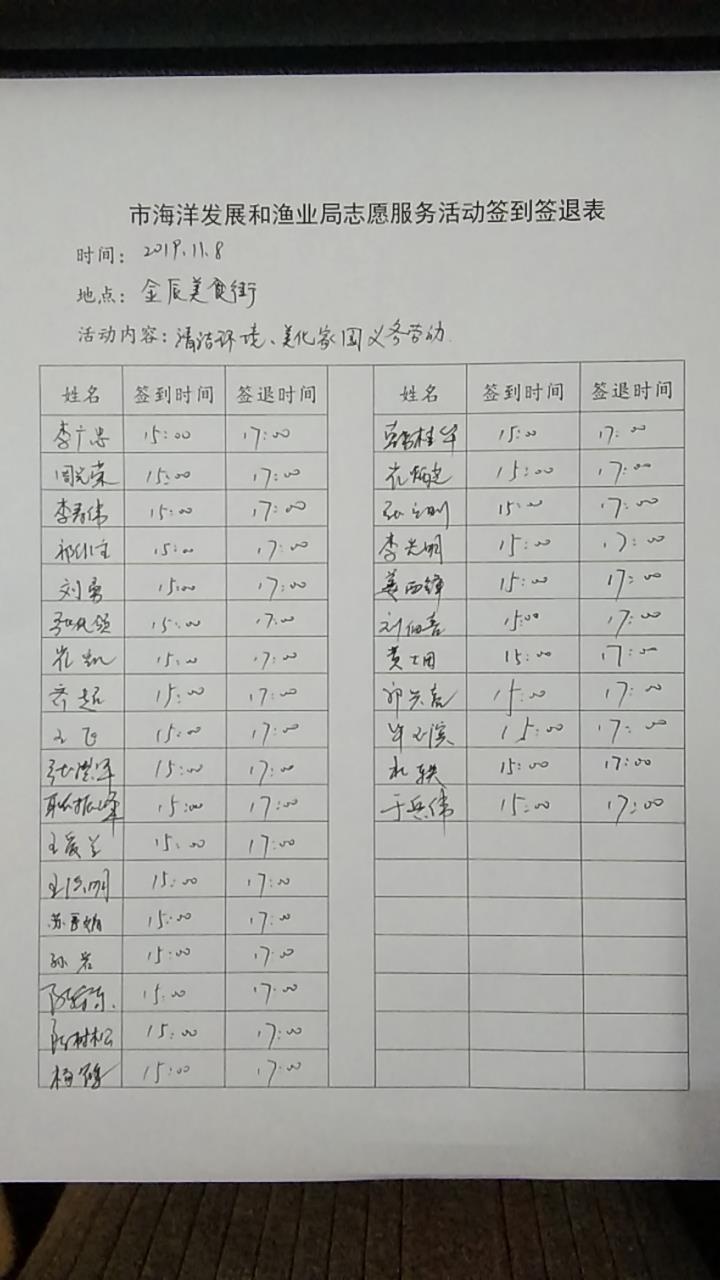 市海洋发展和渔业局志愿服务活动签到签退表
时间：2019.11.8
地点：金辰美食街
活动内容：清洁环境、美化家园义务劳动.
姓名 签到时间 签退时间 姓名 签到时间 签退时间
李广忠 15:00 17:00 桂华 15:00 17:00
周光荣 15:00 17:00 15:00 17:00
李春伟 15:00 17:00 张立刚 15:00 17:00
15:00 17:00 李光明 15:00 17:00
刘勇 15:00 17:00 姜西锋 15:00 17:00
15:00 17:00 刘 15:00 17:00
崔凯 15:00 17:00 黄 15:00 17:00
齐超 15:00 17:00 15:00 17:00
王飞 15:00 17:00 15:00 17:00
15:00 17:00 15:00 17:00
耿振峰 15:00 17:00 于兵伟 15:00 17:00
王爱兰 15:00 17:00
王 明 15:00 17:00
苏 娟 15:00 17:00
孙岩 15:00 17:00
15:00 17:00
陈树松 15:00 17:00
杨 15:00 17:00